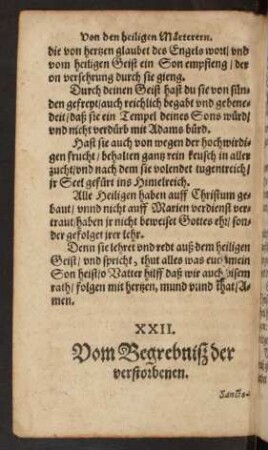 Von den heiligen Märterern.
die von hertzen glaubet des Engels wort/ vnd
vom heiligen Geist ein Son empfieng / der
on versehrung durch sie gieng.
Durch deinen Geist hast du sie von sün-
den gefreyt/ auch reichlich begabt vnd gebene-
deit/ daß sie ein Tempel deines Sons würd/
vnd nicht verdürb mit Adams bürd.
Hast sie auch von wegen der hochwirdi-
gen frucht / behalten gantz rein keusch in aller
zucht/ vnd nach dem sie volendet tugentreich/
jr Seel gefürt ins Himelreich.
Alle Heiligen haben auff Christum ge-
bauet/ vnnd nicht auff Marien verdienst ver-
traut: haben jr nicht beweiset Gottes ehr/ son-
der gefolget jrer lehr.
Denn sie lehret vnd redt auß dem heiligen
Geist/ vnd spricht, thut alles was euch mein
Son heist/ o Vatter hilff daß wir auch disem
rath/ folgen mit hertzen, mund vnnd that/ A-
men.
XXII.
Vom Begrebniß der
verstorbenen.
Sancta-